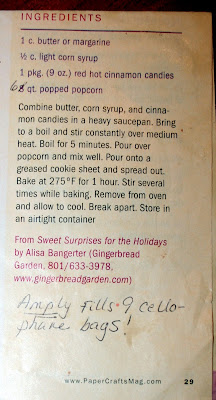 INGREDIENTS
1 c. butter or margarine
½ c. light corn syrup
1 pkg. (9 oz.) red hot cinnamon candies
68 qt. popped popcorn
Combine butter, corn syrup, and cinna-
mon candies in a heavy saucepan. Bring
to a boil and stir constantly over medium
heat. Boil for 5 minutes. Pour over
popcorn and mix well. Pour onto a
greased cookie sheet and spread out.
Bake at 275°F for 1 hour. Stir several
times while baking. Remove from oven
and allow to cool. Break apart. Store in
an airtight container
From Sweet Surprises for the Holidays
by Alisa Bangerter (Gingerbread
Garden, 801/633-3978,
www.gingerbreadgarden.com)
Amply fills 9 cello-
phane bags!
www.PaperCraftsMag.com 29